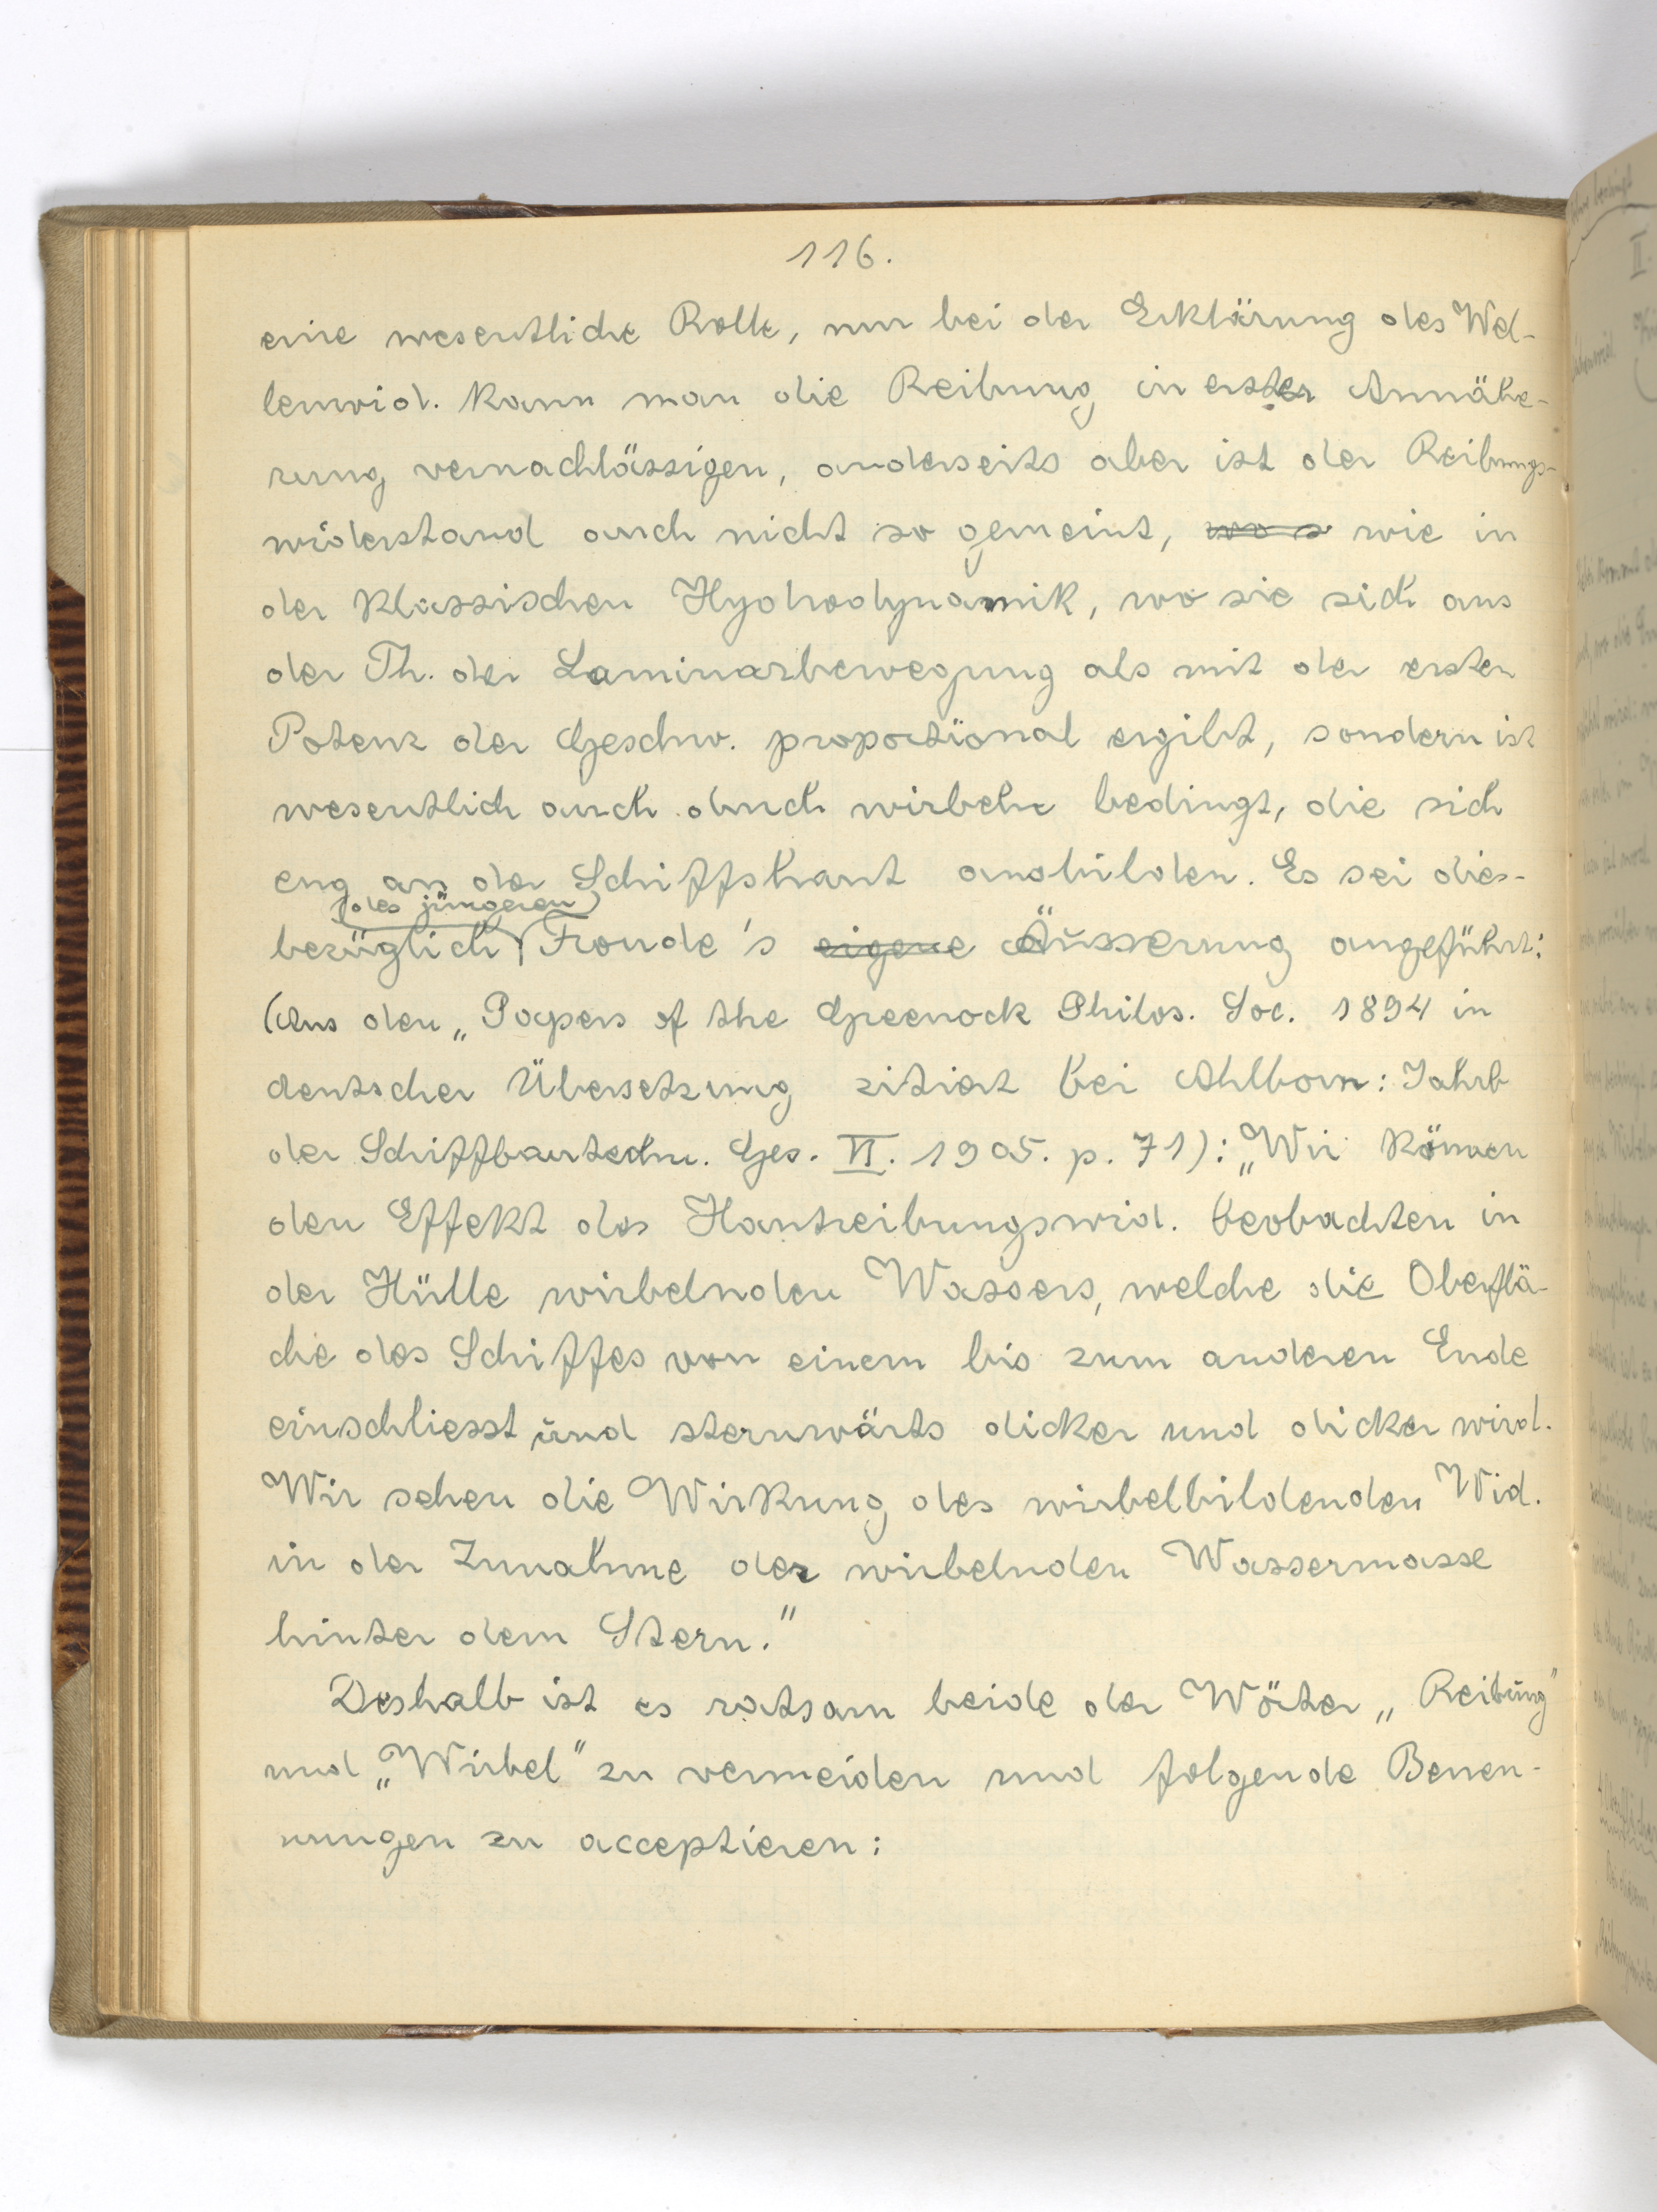 116.
eine wesentliche Rolle, nur bei der Erklärung des Wel-
lenwid. kann man die Reibung in erster Annähe-
rung vernachlässigen, anderseits aber ist der Reibungs-
widerstand auch nicht so gemeint, wo s wie in
der klassischen Hydrodynamik, wo sie sich aus
der Th. der Laminarbewegung als mit der ersten
Potenz der Geschw. proportional ergibt, sondern ist
wesentlich auch durch wirbeln bedingt, die sich
eng an der Schiffshaut ausbilden. Es sei dies-
(des jüngeren)
bezüglich Froude's eigene Äusserung angeführt:
(Aus den „Papers of the Greenock Philos. Soc. 1894 in
deutscher Übersetzung zitiert bei Ahlborn: Jahrb
der Schiffbautechn. Ges. VI. 1905. p. 71): „Wir können
den Effekt des Hautreibungswid. beobachten in
der Hülle wirbelnden Wassers, welche die Oberflä-
che des Schiffes von einem bis zum anderen Ende
einschliesst und sternwärts dicker und dicker wird.
Wir sehen die Wirkung des wirbelbildenden Wid.
in der Zunahme der wirbelnden Wassermasse
hinter dem Stern."
Deshalb ist es ratsam beide der Wörter „Reibung"
und „Wirbel" zu vermeiden und folgende Benen-
nungen zu acceptieren: